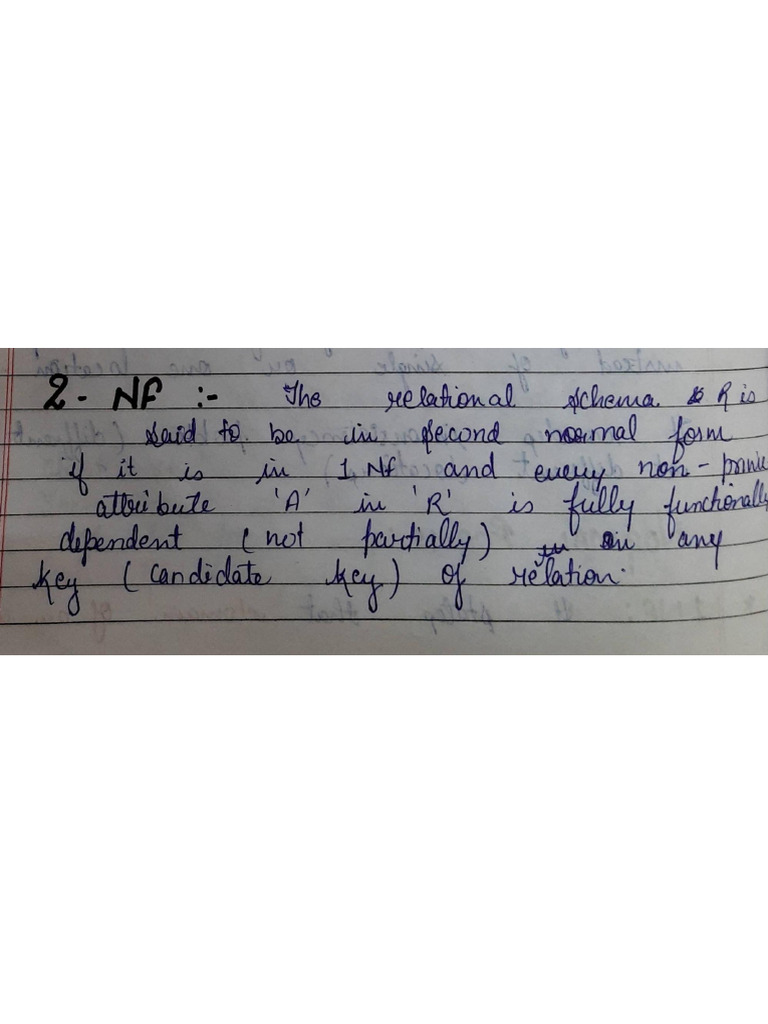 2 - NF :- The relational schema R is
said to be in second normal form
if it is in 1 NF and every non - prime
attribute 'A' in 'R' is fully functionally
dependent (not partially) in any
key (candidate key) of relation.